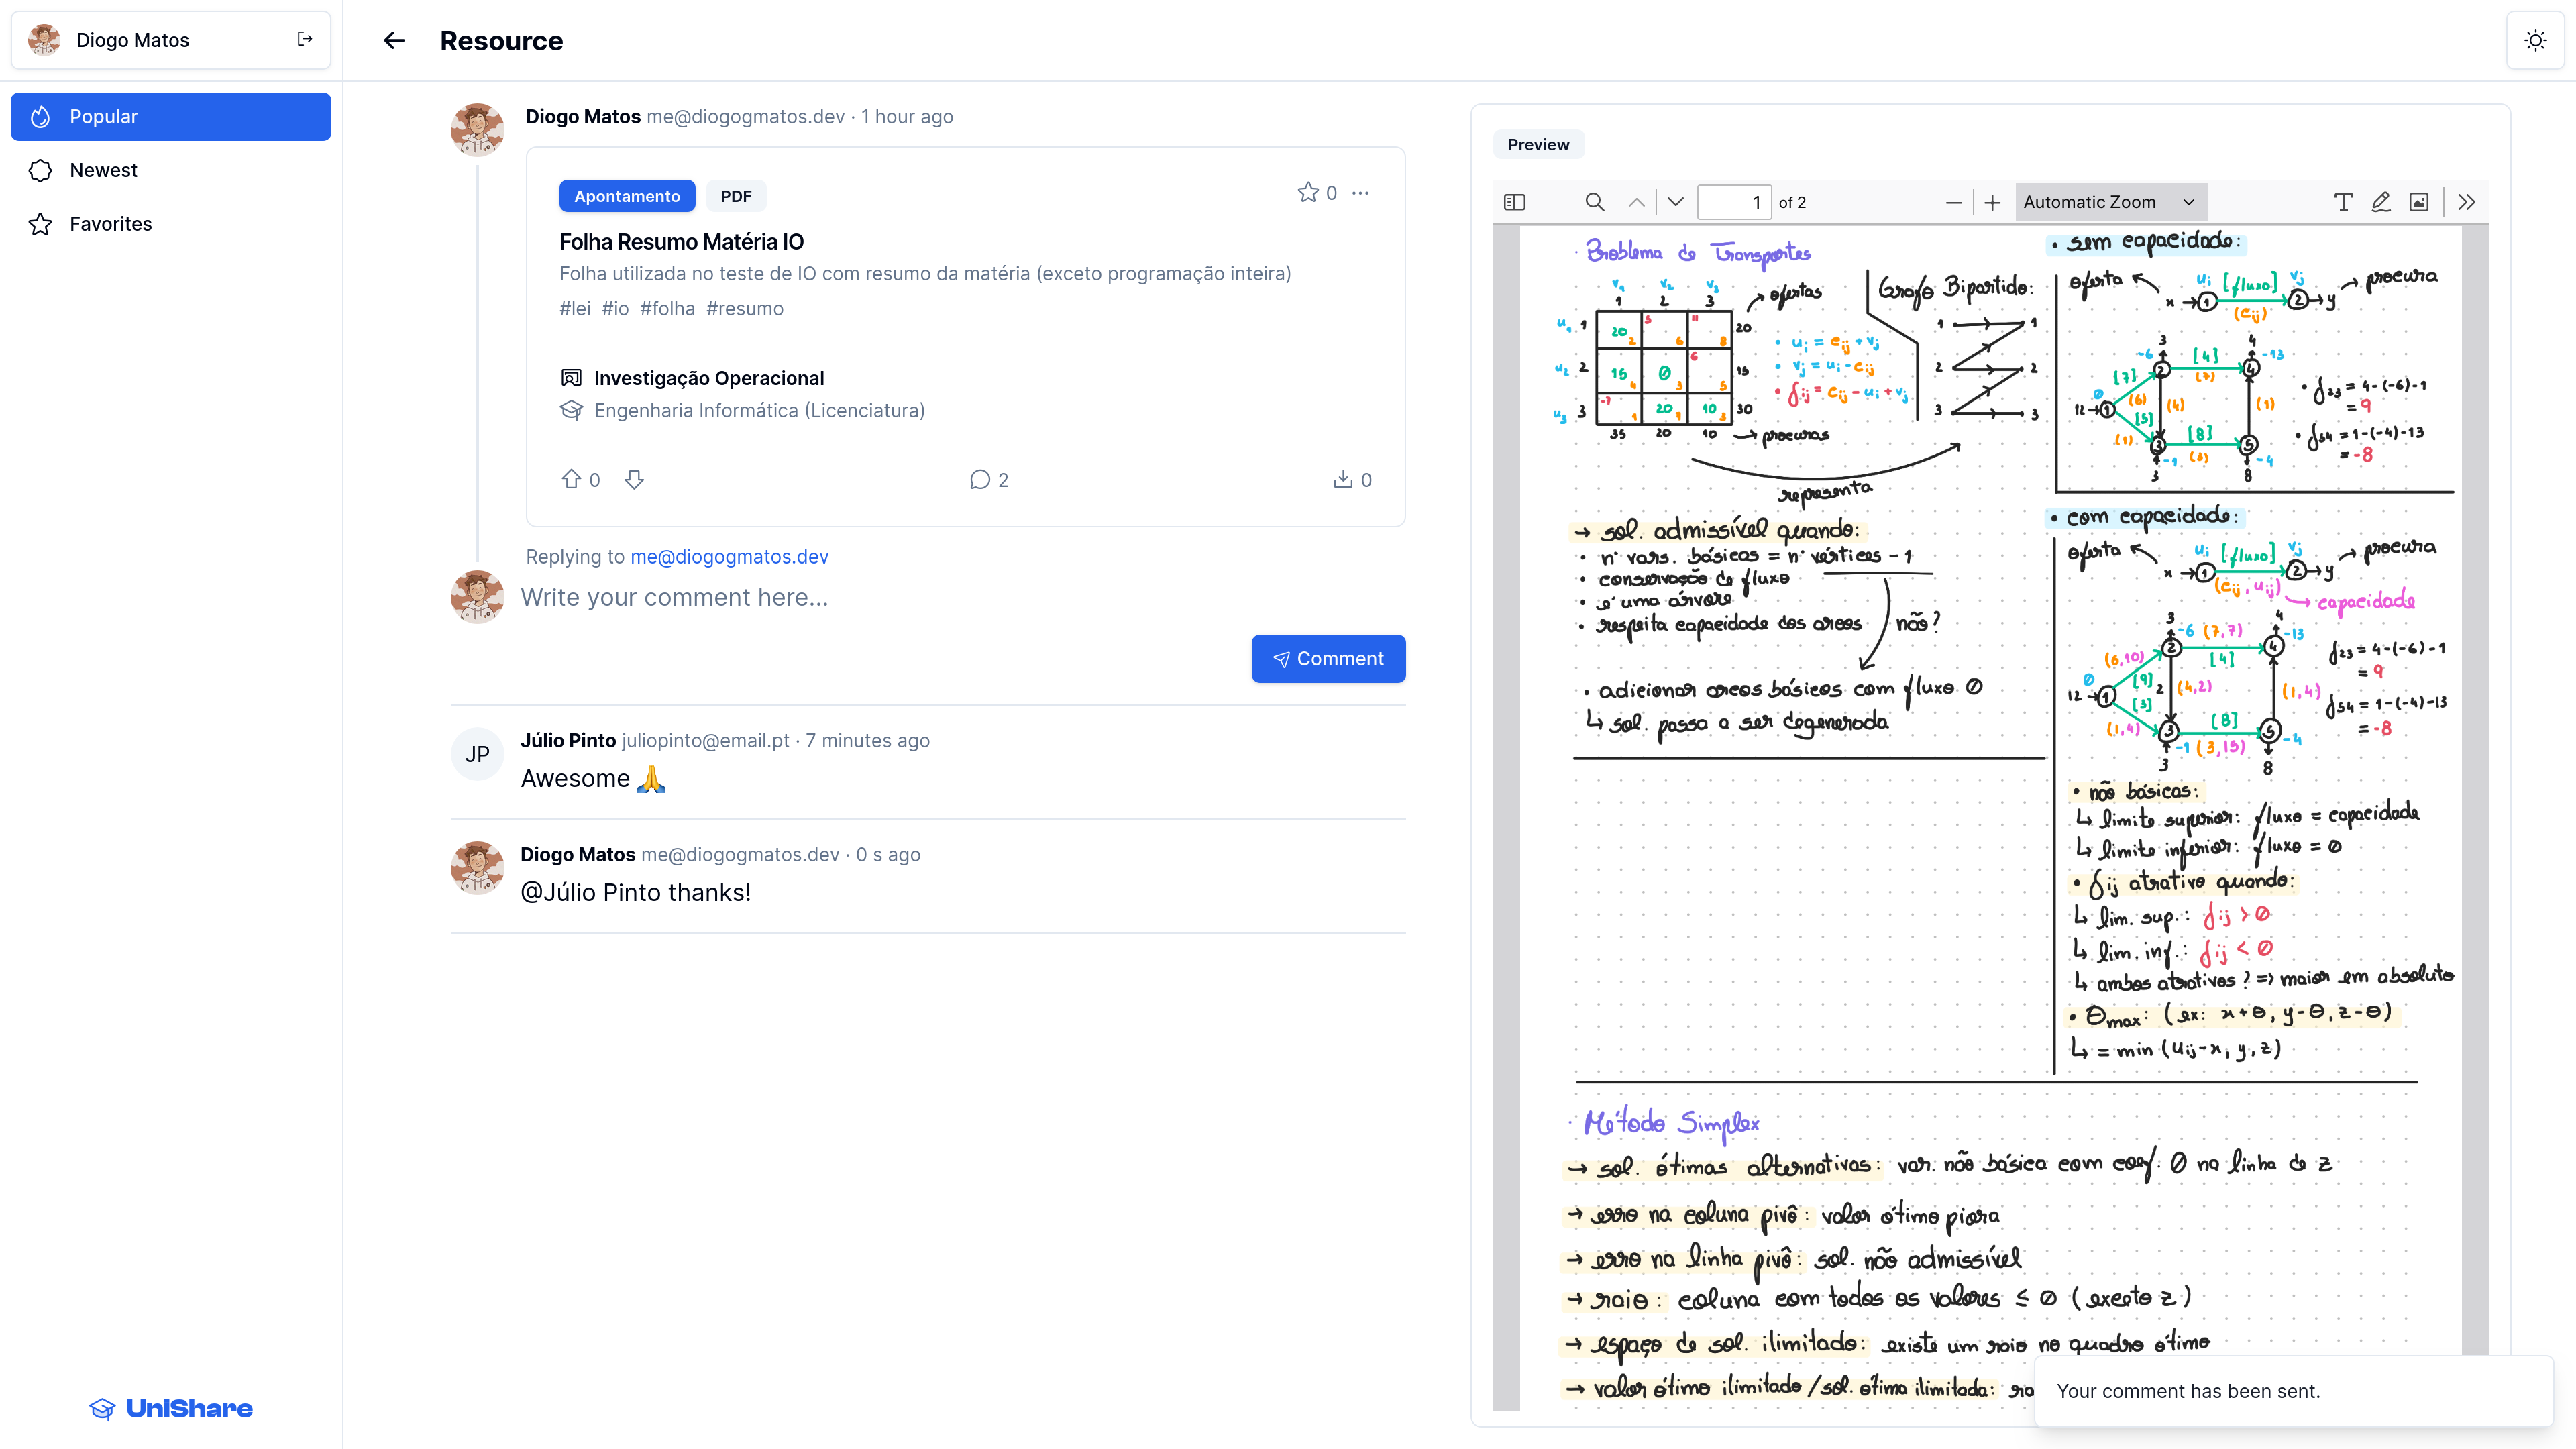 Diogo Matos
Popular
Newest
Favorites
UniShare
Resource
Diogo Matos me@diogogmatos.dev · 1 hour ago
Apontamento PDF
0 ...
Folha Resumo Matéria IO
Folha utilizada no teste de IO com resumo da matéria (exceto programação inteira)
#lei #io #folha #resumo
Investigação Operacional
Engenharia Informática (Licenciatura)
0 2 0
Replying to me@diogogmatos.dev
Write your comment here...
Comment
JP
Júlio Pinto juliopinto@email.pt · 7 minutes ago
Awesome 🙏
Diogo Matos me@diogogmatos.dev · 0 s ago
@Júlio Pinto thanks!
Preview
1 of 2
Automatic Zoom
· Problema de Transportes
v1 v2 v3
1 2 3 → ofertas
u1 1 20 2 5 6 11 8 20
u2 2 15 4 0 3 6 5 15
u3 3 -7 1 20 7 10 3 30
35 20 10 → procuras
• ui = cij + vj
• vj = ui - cij
• δij = cij - ui + vj
Grafo Bipartido:
1 1
2 2
3 3
representa
→ sol. admissível quando:
• nº vars. básicas = nº vértices - 1
• conservação de fluxo
• é uma árvore
• respeita capacidade dos arcos não?
• adicionar arcos básicos com fluxo 0
↳ sol. passa a ser degenerada
• sem capacidade:
oferta ui [fluxo] vj → procura
x → 1 2 → y
(cij)
3 4
-6 [4] -13
2 (7) 4
[7]
0 (6) (4) (1)
12 → 1 [5]
(1) [8]
3 -1 (3) 5 -4
3 8
• δ23 = 4-(-6)-1
= 9
• δ54 = 1-(-4)-13
= -8
• com capacidade:
oferta ui [fluxo] vj → procura
x → 1 2 → y
(cij, uij) → capacidade
3 4
-6 (7,7) -13
2 [4] 4
(6,10)
0 [9] 2 (4,2) (1,4)
12 → 1 [3]
(1,4) [8]
3 -1 (3,15) 5 -4
3 8
δ23 = 4-(-6)-1
= 9
δ54 = 1-(-4)-13
= -8
• não básicas:
↳ limite superior: fluxo = capacidade
↳ limite inferior: fluxo = 0
• δij atrativo quando:
↳ lim. sup.: δij > 0
↳ lim. inf.: δij < 0
↳ ambos atrativos? => maior em absoluto
• θmax: (ex: x+θ, y-θ, z-θ)
↳ = min (uij-x, y, z)
· Método Simplex
→ sol. ótimas alternativas: var. não básica com coef. 0 na linha de z
→ erro na coluna pivô: valor ótimo piora
→ erro na linha pivô: sol. não admissível
→ raio: coluna com todos os valores ≤ 0 (exceto z)
→ espaço de sol. ilimitado: existe um raio no quadro ótimo
→ valor ótimo ilimitado/sol. ótima ilimitada:
Your comment has been sent.